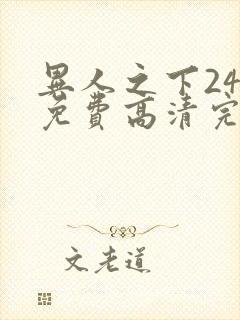 異人之下24
免費高清完
文老道